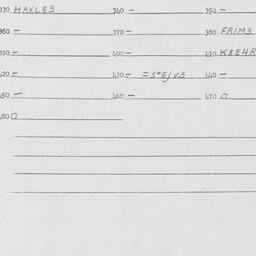 330 MAXL83 340 - 350 -
360 - 370 - 380 FRIM3
390 - 400 - 410 K8E4R
420 - 430 - =5*Ejv3 440 -
450 - 460 - 470 0
480 0